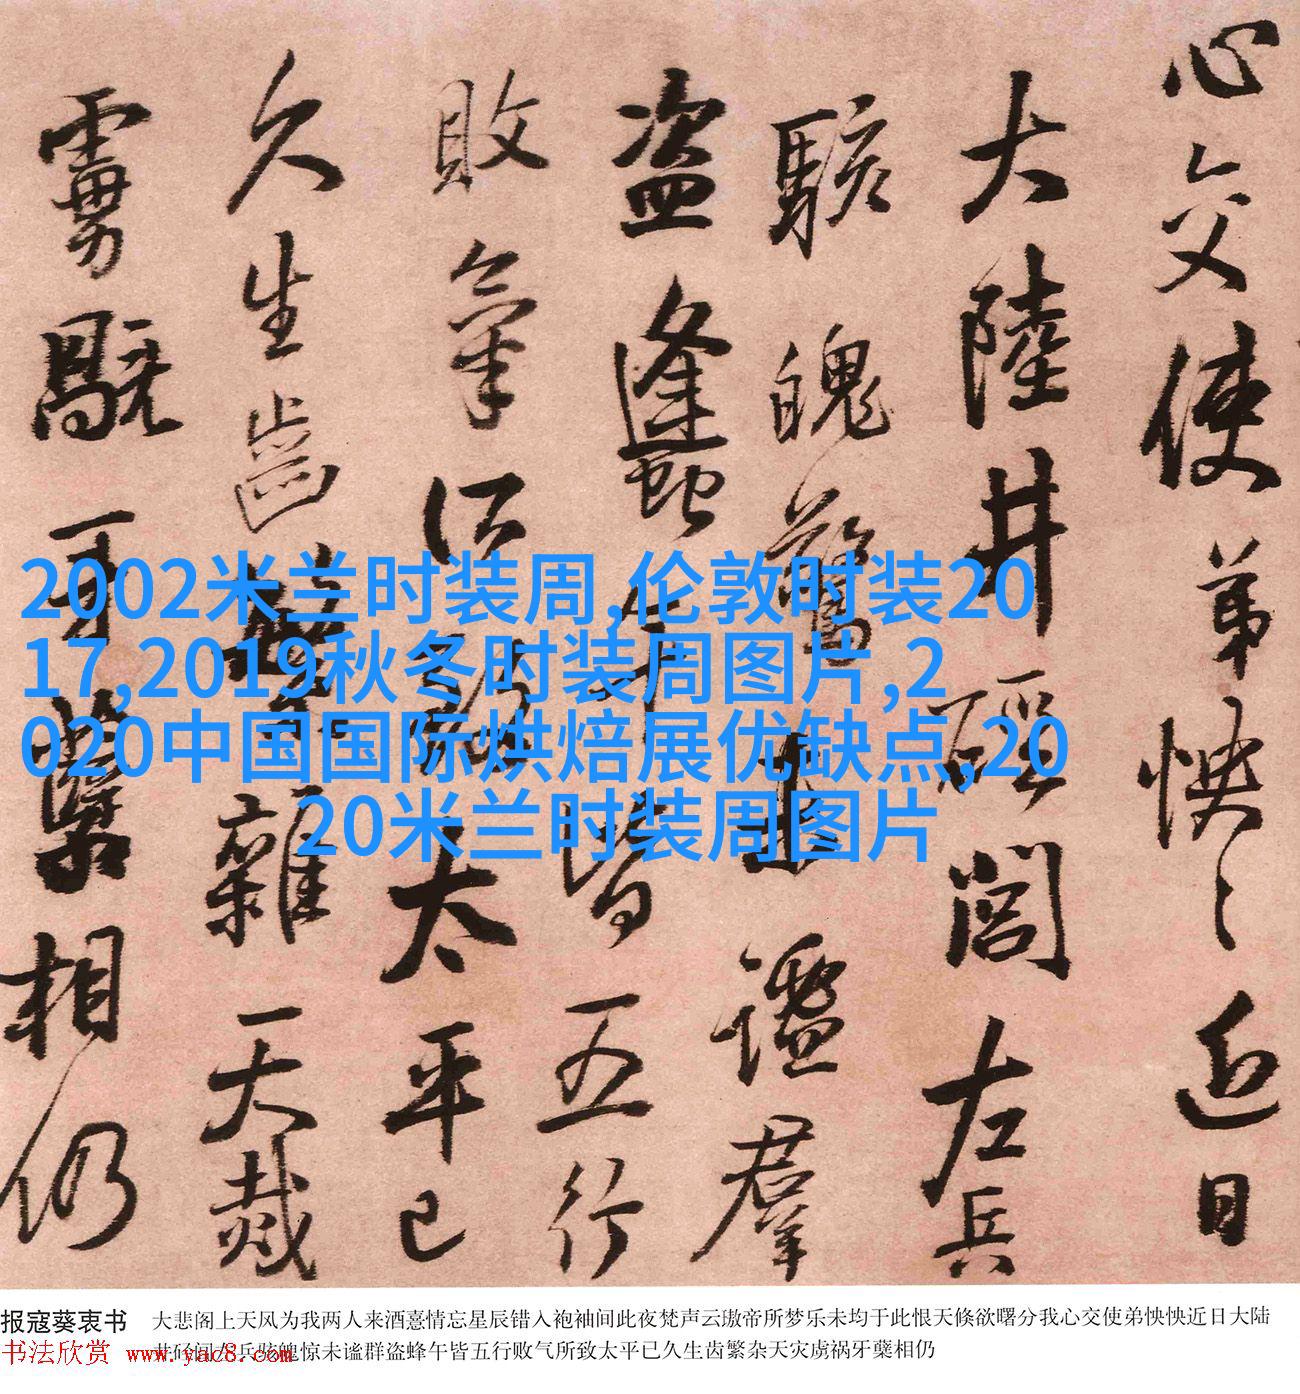 心交使弟怏〻近日
大陸井硜左兵
駭魄驚未謐羣
盗蠭午皆五行
敗氣所致太平已
久生齒繁雜天烖
虜旤牙蘖相仍
2002米兰时装周,伦敦时装20
17,2019秋冬时装周图片,2
020中国国际烘焙展优缺点,20
20米兰时装周图片
报寇葵衷书 大悲阁上天风为我两人来酒憙情忘星辰错入袍袖间此夜梵声云璈帝所梦乐未均于此恨天倏欲曙分我心交使弟怏怏近日大陆
井硁左兵骇魄惊未谧群盗蜂午皆五行败气所致太平已久生齿繁杂天灾虏祸牙蘖相仍
书法欣赏 www.yac8.com